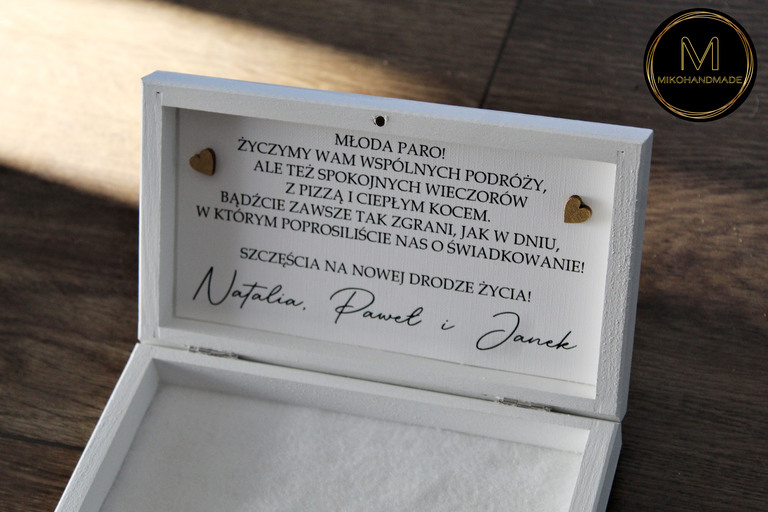 M
MIKOHANDMADE
MŁODA PARO!
ŻYCZYMY WAM WSPÓLNYCH PODRÓŻY,
ALE TEŻ SPOKOJNYCH WIECZORÓW
Z PIZZĄ I CIEPŁYM KOCEM.
BĄDŹCIE ZAWSZE TAK ZGRANI, JAK W DNIU,
W KTÓRYM POPROSILIŚCIE NAS O ŚWIADKOWANIE!
SZCZĘŚCIA NA NOWEJ DRODZE ŻYCIA!
Natalia, Paweł i Janek